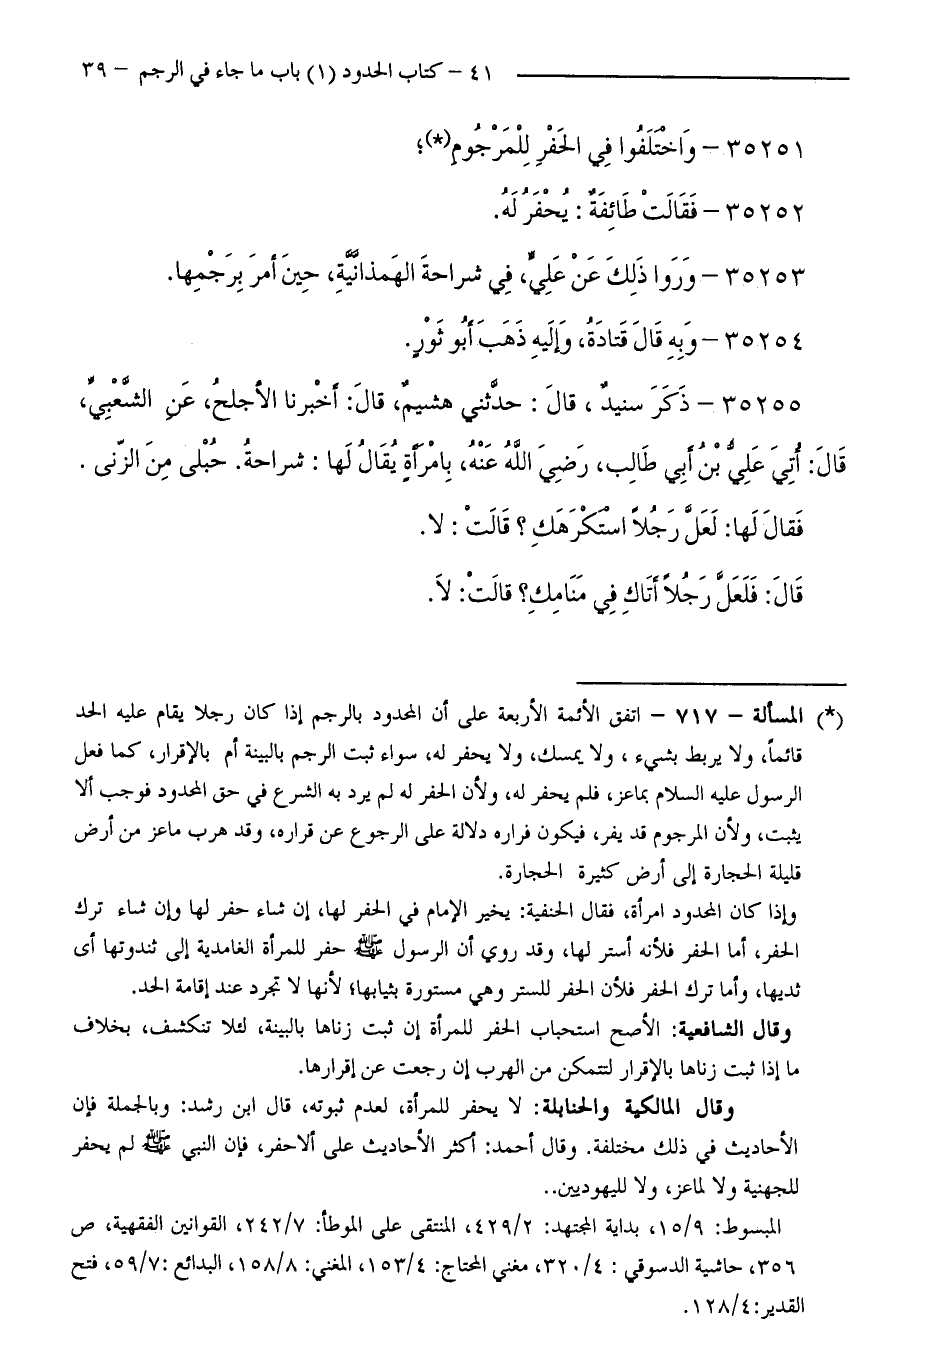 ٤١ – كتاب الحدود (١) باب ما جاء في الرجم – ٣٩
٣٥٢٥١ – وَاخْتَلَفُوا فِي الحَفْرِ لِلْمَرْجُومِ(*)؛
٣٥٢٥٢ – فَقَالَتْ طَائِفَةٌ : يُحْفَرُ لَهُ.
٣٥٢٥٣ – وَرَوَا ذَلِكَ عَنْ عَلِيٍّ، فِي شراحةَ الهَمذانيَّةِ، حِينَ أمرَ بِرَجْمِها.
٣٥٢٥٤ – وَبِهِ قَالَ قَتَادَةُ، وَإِلَيهِ ذَهَبَ أَبُو ثَوْرٍ.
٣٥٢٥٥ – ذَكَرَ سنيدٌ ، قالَ : حدَّثني هشيمٌ، قالَ: أَخْبرنا الأجلحُ، عَنِ الشَّعْبِيِّ،
قَالَ: أُتِيَ عَلِيُّ بْنُ أَبِي طَالِبٍ، رَضِيَ اللَّهُ عَنْهُ، بِامْرَأَةٍ يُقَالُ لَها : شراحةُ. حُبْلى مِنَ الزِّنى .
فَقالَ لَها: لَعَلَّ رَجُلاً اسْتَكْرَهَكِ ؟ قَالَتْ : لا.
قَالَ: فَلَعَلَّ رَجُلاً أَتَاكِ فِي مَنَامِكِ؟ قالَتْ: لاَ.
(*) المسألة – ٧١٧ – اتفق الأئمة الأربعة على أن المحدود بالرجم إذا كان رجلا يقام عليه الحد
قائماً، ولا يربط بشيء ، ولا يمسك، ولا يحفر له، سواء ثبت الرجم بالبينة أم بالإقرار، كما فعل
الرسول عليه السلام بماعز، فلم يحفر له، ولأن الحفر له لم يرد به الشرع في حق المحدود فوجب ألا
يثبت، ولأن المرجوم قد يفر، فيكون فراره دلالة على الرجوع عن قراره، وقد هرب ماعز من أرض
قليلة الحجارة إلى أرض كثيرة الحجارة.
وإذا كان المحدود امرأة، فقال الحنفية: يخير الإمام في الحفر لها، إن شاء حفر لها وإن شاء ترك
الحفر، أما الحفر فلأنه أستر لها، وقد روي أن الرسول ﷺ حفر للمرأة الغامدية إلى ثندوتها أى
ثديها، وأما ترك الحفر فلأن الحفر للستر وهي مستورة بثيابها؛ لأنها لا تجرد عند إقامة الحد.
وقال الشافعية: الأصح استحباب الحفر للمرأة إن ثبت زناها بالبينة، لئلا تنكشف، بخلاف
ما إذا ثبت زناها بالإقرار لتتمكن من الهرب إن رجعت عن إقرارها.
وقال المالكية والحنابلة: لا يحفر للمرأة، لعدم ثبوته، قال ابن رشد: وبالجملة فإن
الأحاديث في ذلك مختلفة. وقال أحمد: أكثر الأحاديث على ألاحفر، فإن النبي ﷺ لم يحفر
للجهنية ولا لماعز، ولا لليهوديين..
المبسوط: ١٥/٩، بداية المجتهد: ٤٢٩/٢، المنتقى على الموطأ: ٢٤٢/٧، القوانين الفقهية، ص
٣٥٦، حاشية الدسوقي : ٣٢٠/٤، مغني المحتاج: ١٥٣/٤، المغني: ١٥٨/٨، البدائع :٥٩/٧، فتح
القدير:١٢٨/٤.